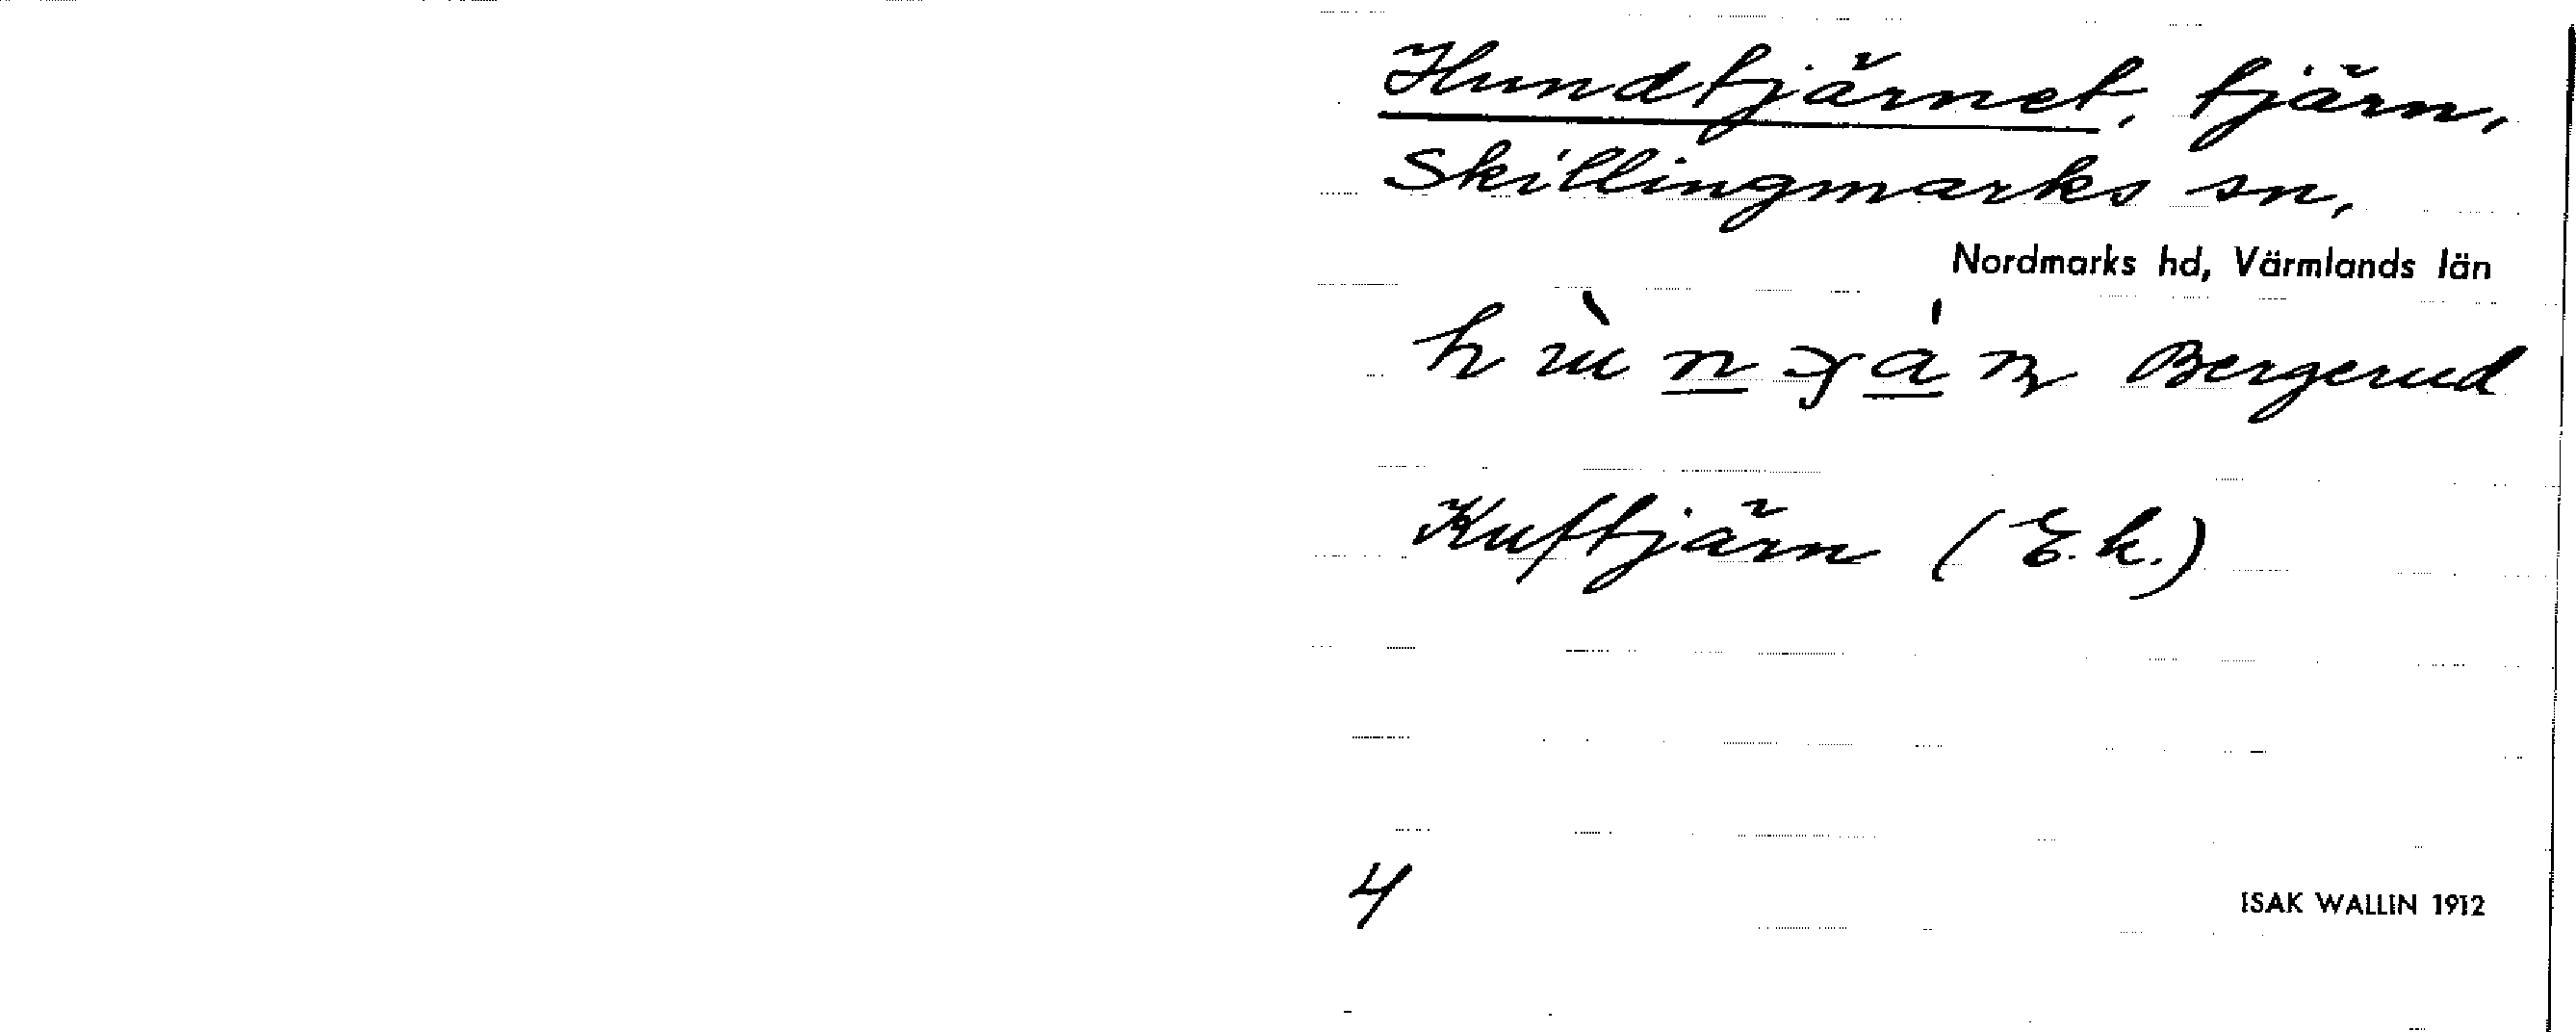 Hundtjärnet, tjärn,
Skillingmarks sn,
Nordmarks hd, Värmlands län
Bergerud
Kuftjärn (E.k.)
4
ISAK WALLIN 1912